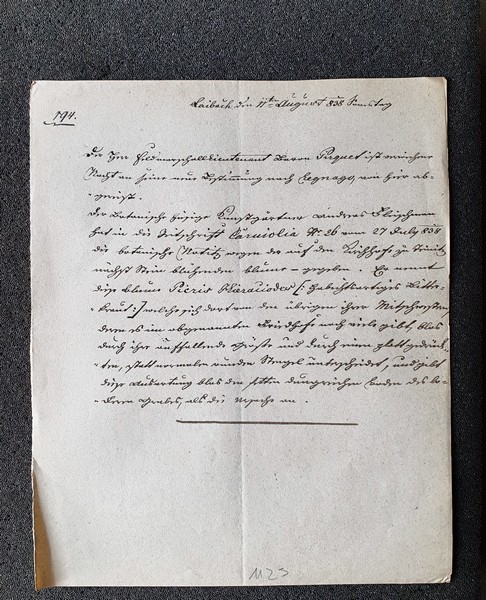 194.
Laibach den 11ten August 838 Samstag
Der Herr Feldmarschallieutenant Baron Pirquet ist in voriger
Nacht an seine neue Bestimmung nach Legnago, von hier ab-
-gereist.
Der botanische hiesige Kunstgärtner Andreas Fleischman
hat in der Zeitschrift Carniolia No 26 vom 27 July 838
die botanische Notitz wegen der auf dem Kirchhofe zu
nächst Stein blühenden Blume - gegeben. Er nennt
diese Blume Picris Hieracioides /: habichtsartiges Bitter-
-kraut :/ welche sich dort von den übrigen ihrer Mitschwestern,
deren es im obgenannten Friedhofe noch viele gibt, blos
durch ihre auffallende Größe und durch einen platt gedrück-
-ten, statt normalen runden Stengel unterscheidet, und gibt
diese Ausartung blos dem fetten dungreichen Boden des
Grabes, als die Ursache an.
1123